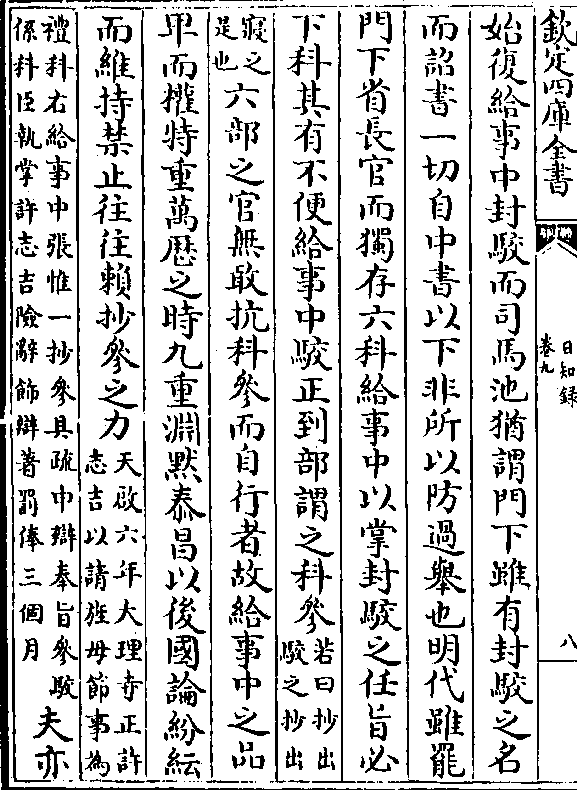 欽定四庫全書
日知録
卷九
八
始復給事中封駮而司馬池猶謂門下雖有封駮之名
而詔書一切自中書以下非所以防過舉也明代雖罷
門下省長官而獨存六科給事中以掌封駮之任旨必
下科其有不便給事中駮正到部謂之科參若曰抄出駮之抄出
寢之是也六部之官無敢抗科參而自行者故給事中之品
卑而權特重萬厯之時九重淵默泰昌以後國論紛紜
而維持禁止往往賴抄參之力天啟六年大理寺正許志吉以請旌母節事為
禮科右給事中張惟一抄參具疏中辯奉旨參駮係科臣執掌許志吉險辭飾辯著罰俸三個月夫亦